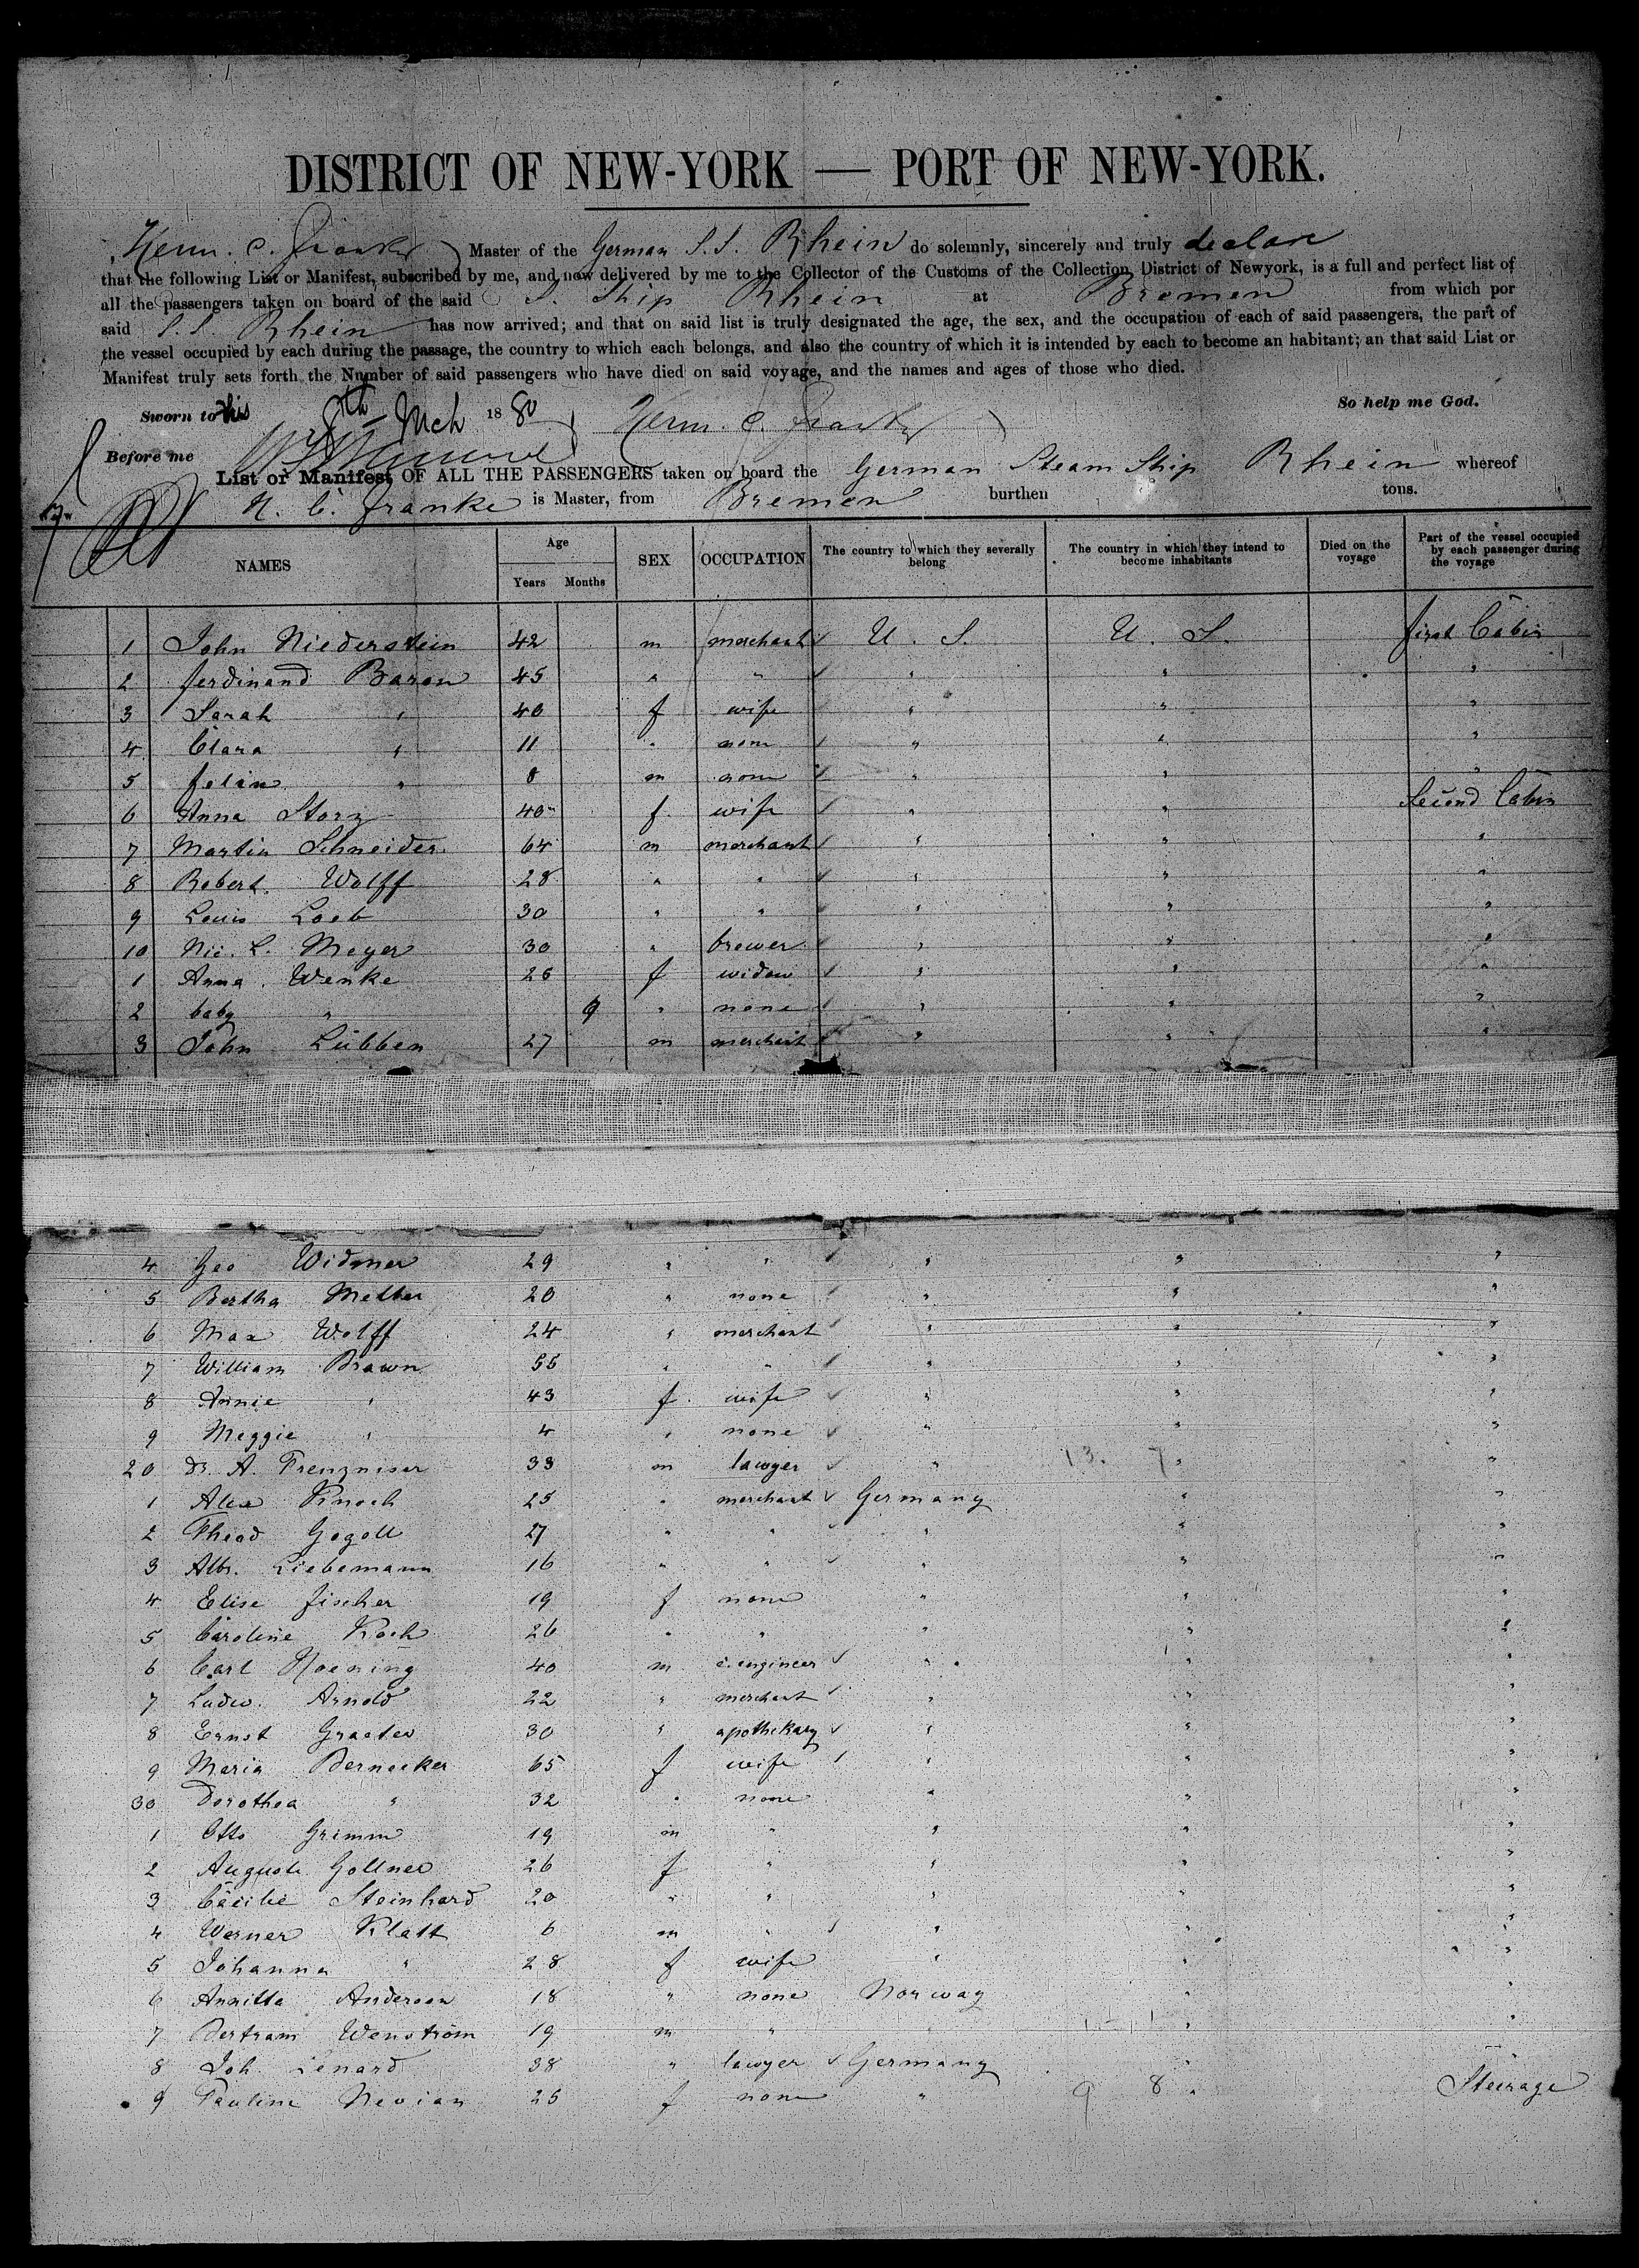 DISTRICT OF NEW-YORK — PORT OF NEW-YORK.
Herm. C. Franke Master of the German S.S. Rhein do solemnly, sincerely and truly declare
that the following List or Manifest, subscribed by me, and now delivered by me to the Collector of the Customs of the Collection District of Newyork, is a full and perfect list of
all the passengers taken on board of the said S. Ship Rhein at Bremen from which por
said S.S. Rhein has now arrived; and that on said list is truly designated the age, the sex, and the occupation of each of said passengers, the part of
the vessel occupied by each during the passage, the country to which each belongs, and also the country of which it is intended by each to become an habitant; an that said List or
Manifest truly sets forth the Number of said passengers who have died on said voyage, and the names and ages of those who died.
So help me God.
Sworn to this 8th Mch 1880 Herm. C. Franke
Before me
List or Manifest OF ALL THE PASSENGERS taken on board the German Steam Ship Rhein whereof
H. C. Franke is Master, from Bremen burthen tons.
NAMES Age Years Months SEX OCCUPATION The country to which they severally belong The country in which they intend to become inhabitants Died on the voyage Part of the vessel occupied by each passenger during the voyage
1 John Niederstein 42 m merchant U. S. U. S. first Cabin
2 ferdinand Baron 45 " " " " "
3 Sarah " 40 f wife " " "
4 Clara " 11 " none " " "
5 felix " 8 m none " " "
6 Anna Storz 40 f. wife " " Second Cabin
7 Martin Schneider 64 m merchant " " "
8 Robert Wolff 28 " " " " "
9 Louis Loeb 30 " " " " "
10 Nic. L. Meyer 30 " brewer " " "
1 Anna Wenke 25 f widow " " "
2 baby " 9 " none " " "
3 John Lübben 27 m merchant " " "
4 Geo Widmer 29 " " " " "
5 Bertha Metter 20 " none " " "
6 Max Wolff 24 " merchant " " "
7 William Brawn 55 " " " " "
8 Annie " 43 f. wife " " "
9 Meggie " 4 " none " " "
20 Dr. A. 33 m lawyer " 13. 7 " "
1 Alex Knoch 25 " merchant Germany " "
2 Theod Gogoll 27 " " " " "
3 Alb. Liebemann 16 " " " " "
4 Elise fischer 19 f none " " "
5 Caroline Koch 26 " " " " "
6 Carl Roening 40 m c. engineer " " "
7 Ludw. Arnold 22 " merchant " " "
8 Ernst Graeter 30 " apothekary " " "
9 Maria Bernecker 65 f wife " " "
30 Dorothea " 32 " none " " "
1 Otto Grimm 19 m " " " "
2 Auguste Gollner 26 f " " " "
3 Cäcilie Steinhard 20 " " " " "
4 Werner Klatt 6 m " " " "
5 Johanna " 28 f wife " " "
6 Annitta Anderson 18 " none Norway " "
7 Bertram Wenström 19 m " " " "
8 Joh. Lenard 38 " lawyer Germany " "
9 Pauline Nevian 25 f none " 9 8 " Steerage